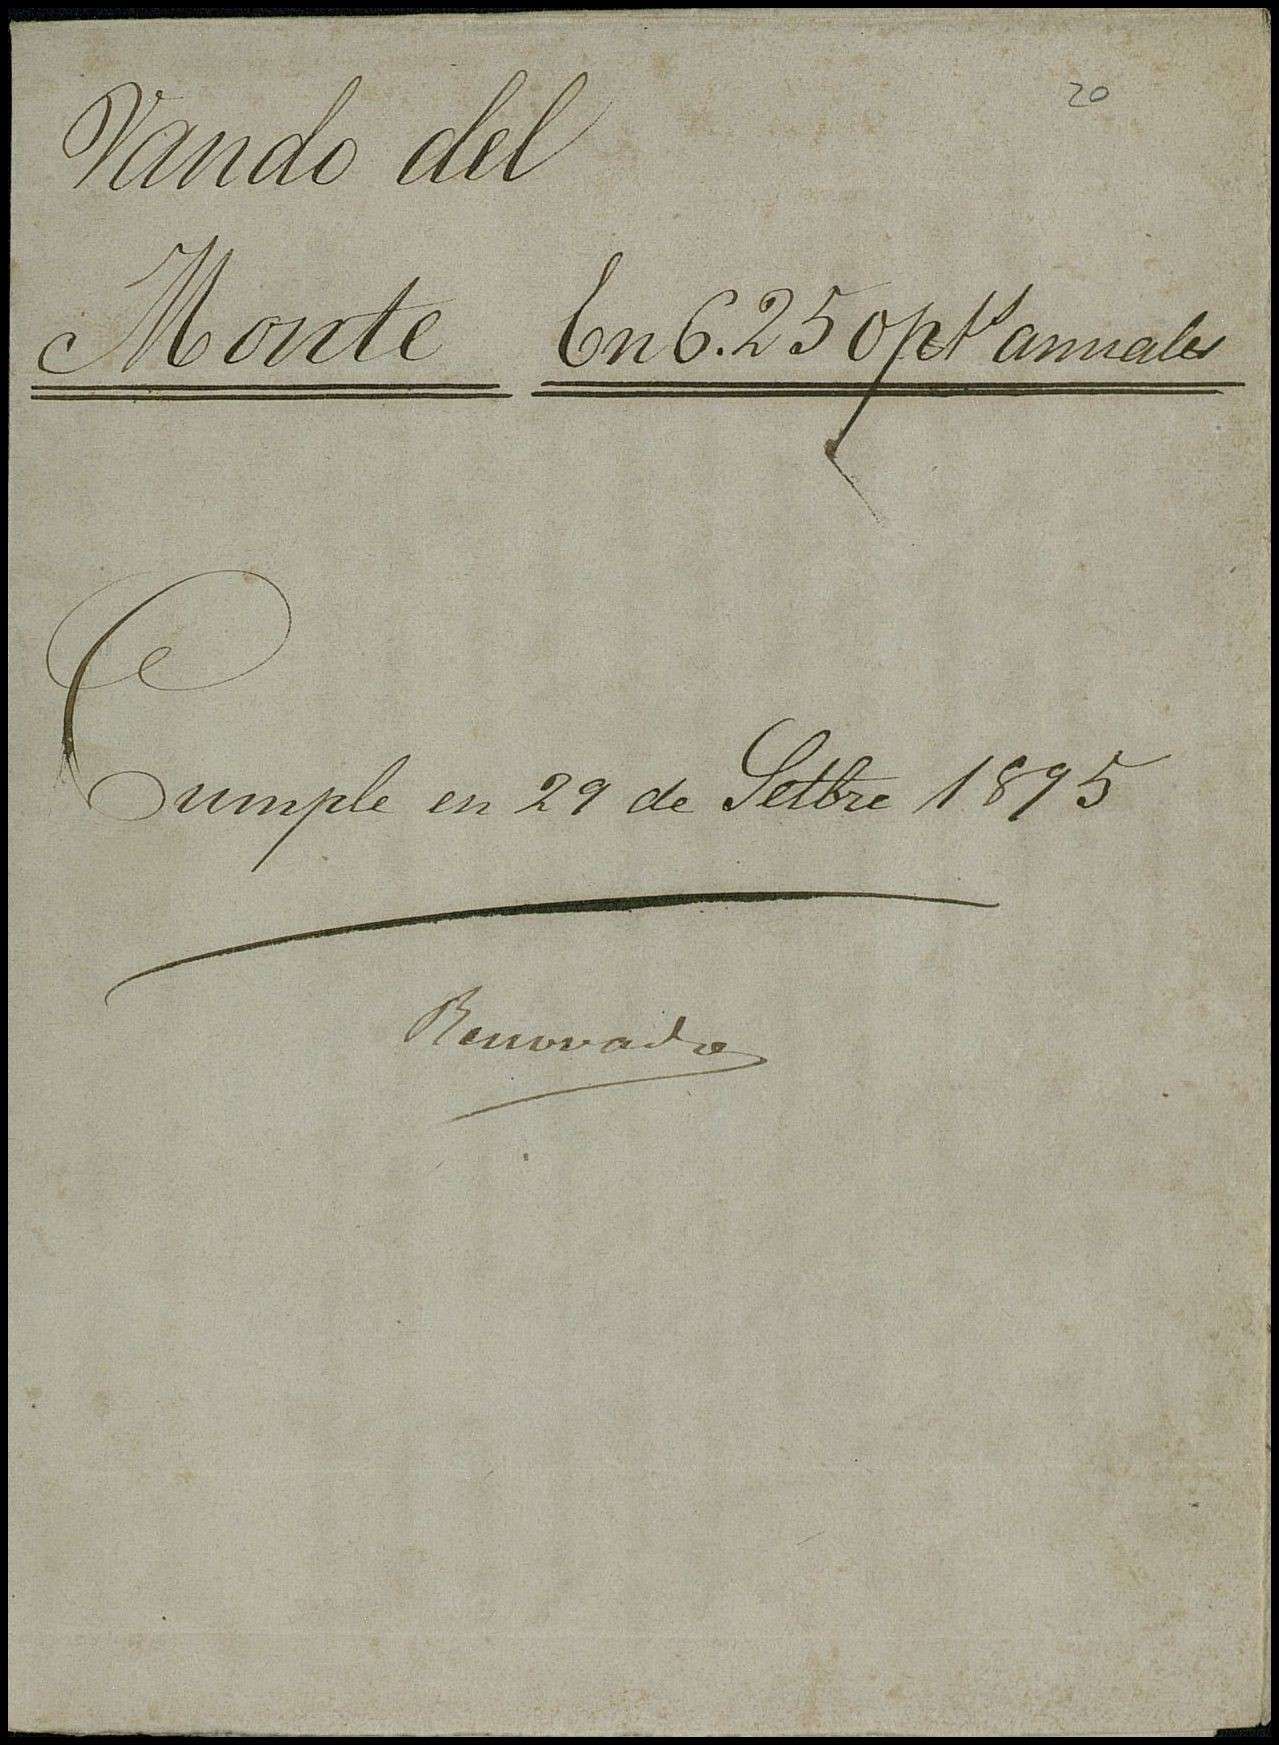 20
Vando del
Monte En 6.250 pts anuales
Cumple en 29 de Setbre 1895
Renovado